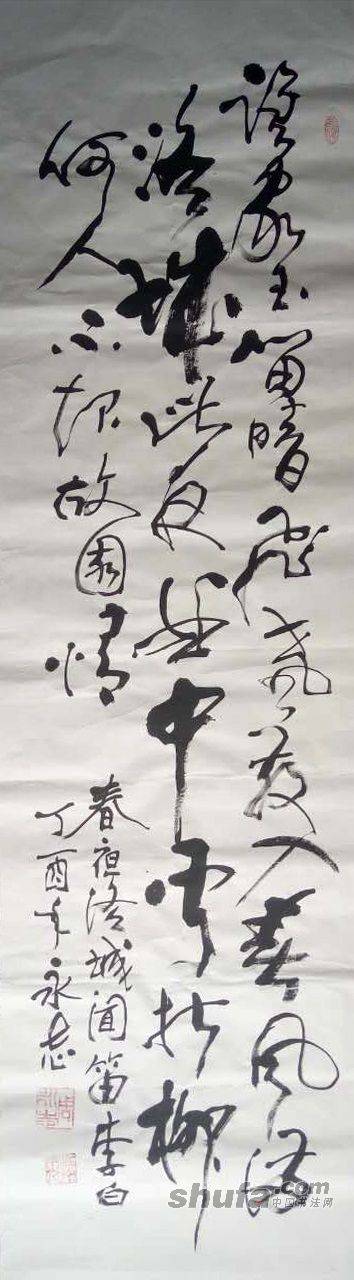 誰家玉笛暗飛聲散入春風滿
洛城此夜曲中聞折柳
何人不起故園情
春夜洛城聞笛李白
丁酉年永志
shufa.com
中国书法网